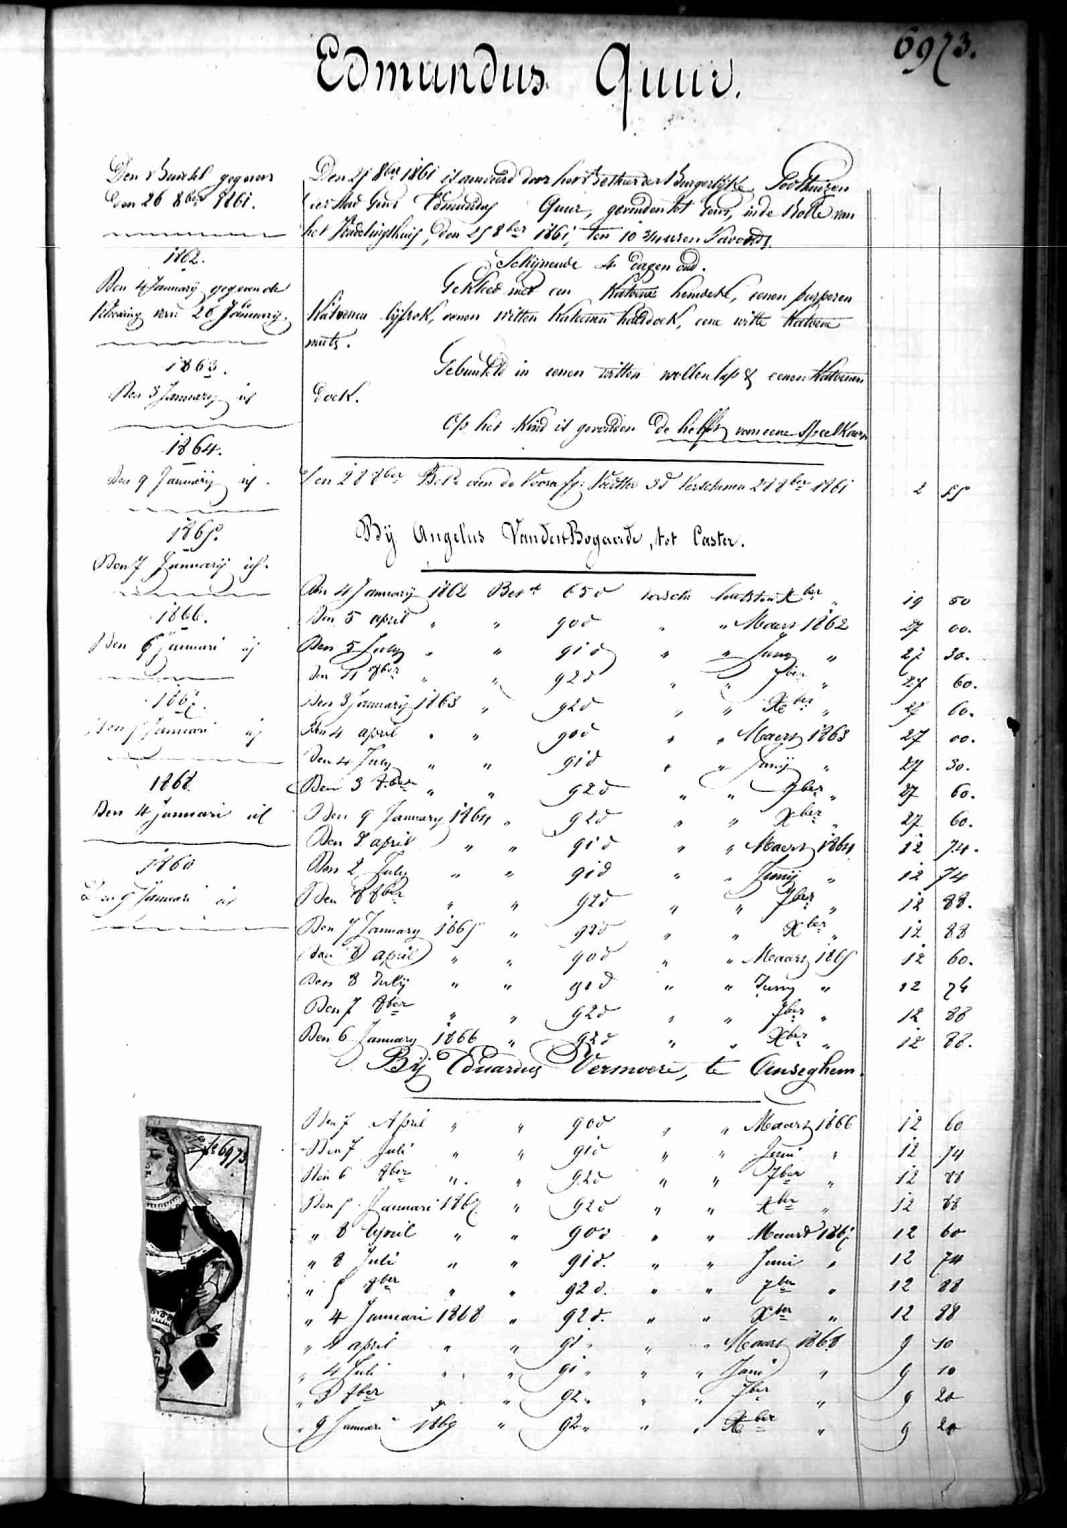 6973.
Edmundus Quur.
Den Burchl gegeven
den 26 8ber 1861.
1862.
Den 4 January gegeven de
van 26 January.
1863.
Den 3 January id
1864.
Den 9 January id.
1865.
Den 7 January id.
1866.
Den 6 Januari id
1867.
Den 5 Januari id
1868.
Den 4 Januari id
1869
Den 9 Januari id
Den 25 8ber 1861 is aanveerd door het der Burgerlijke Godshuizen
Edmundus Quur, gevonden tot Gend, in de Rolle van
het Vondelingshuis, den 25 8ber 1861, ten 10 uren s'avonds.
Schijnende 4 dagen oud.
Gekleed met een Katoene hemdeke, eenen purperen
Katoenen lijfrok, eenen witten Katoenen halsdoek, eene witte Katoene
muts.
Gebunseld in eenen witten wollen lap & eenen Katoenen
doek.
Op het Kind is gevonden de helft van eene speelkaart
Den 28 8ber 28 8ber 1861 2 55
Bij Angelus VandenBogaerde, tot Caster.
Den 4 January 1862 Bet 65 d Xber " 19 50
Den 5 april " " 90 d " " Maart 1862 27 00.
Den 5 July " " 91 d " " Juny " 27 30.
Den 8ber " " 92 d " " 7ber " 27 60.
Den 3 January 1863 " 92 d " " Xber " 27 60.
Den 4 april " " 90 d " " Maart 1863 27 00.
Den 4 July " " 91 d " " Junij " 27 30.
Den 3 8ber " " 92 d " " 7ber " 27 60.
Den 9 January 1864 " 92 d " " Xber " 27 60.
Den 8 april " " 91 d " " Maart 1864 12 74.
Den 2 July " " 91 d " " Junij " 12 74
Den 8 8ber " " 92 d " " 7ber " 12 88.
Den 7 January 1865 " 92 d " " Xber " 12 88
Den 8 april " " 90 d " " Maart 1865 12 60.
Den 8 July " " 91 d " " Juny " 12 74
Den 7 8ber " " 92 d " " 7ber " 12 88
Den 6 January 1866 " 92 d " " Xber " 12 88.
Bij Eduardus Vermoere, te Anseghem.
Den 7 April " " 90 d " " Maart 1866 12 60
Den 7 Juli " " 91 d " " Juni " 12 74
Den 6 8ber " " 92 d " " 7ber " 12 88
Den 5 Januari 1867 " 92 d " " Xber 12 88
" 8 April " " 90 d " " Maart 1867 12 60
" 8 Juli " " 91 d. " " Juni " 12 74
" 5 8ber " " 92 d. " " 7ber " 12 88
" 4 Januari 1868 " 92 d. " " Xber " 12 88
" 4 april " " 91 " " " Maart 1868 9 10
" 4 Juli " " 91 " " " Juni " 9 10
" 3 8ber " " 92 " " " 7ber " 9 20
" 9 Januari 1869 " 92 " " " Xber " 9 20
6973